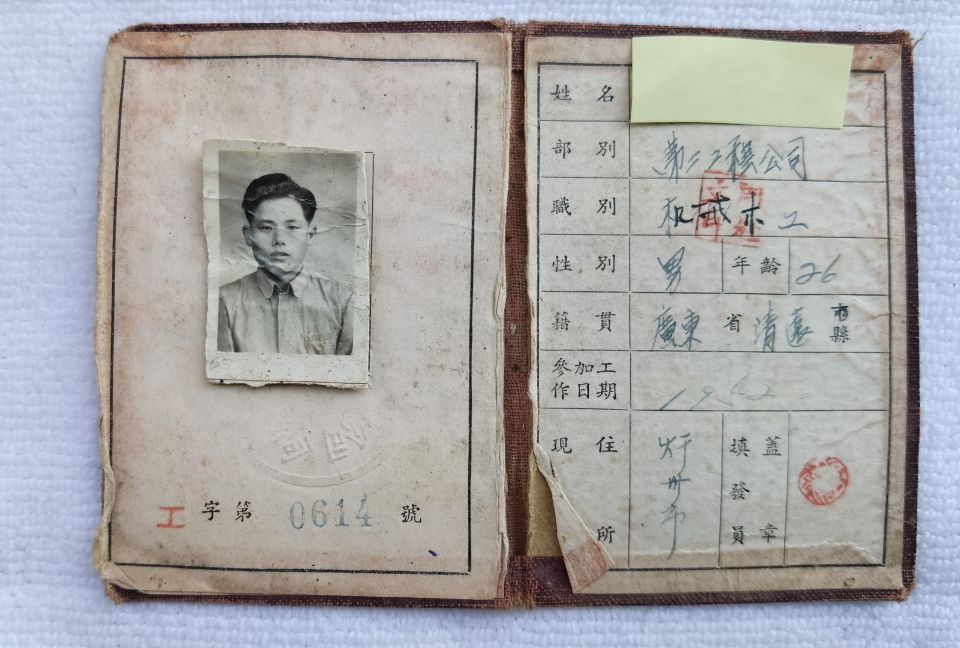 公司
工字第 0614 號
姓名
部別 第二工程公司
職別 机械木工
性別 男 年齡 26
籍貫 廣東省清遠市縣
參加工作日期 1952
現住所 州市
填發員蓋章